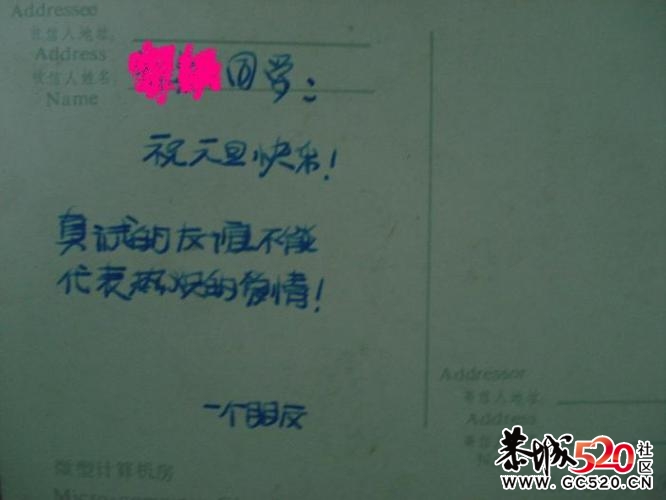 Addressee
收信人地址
Address
收信人姓名
Name
同学：
祝元旦快乐！
真试的友谊不能
代表热烈的爱情！
一个朋友
Addressor
寄信人地址
Address
微型计算机房
恭城520社区
WWW.GC520.CN